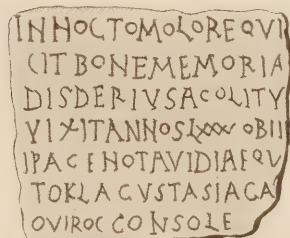 INHOCTOMOLOREQVI
CITBONEMEMORIA
DISDERIVSACOLITV
VIXITANNOSLXXXVOBII
IPACENOTAVIDIAEQV
TOKLAGVSTASIACA
OVIROCCONSOLE